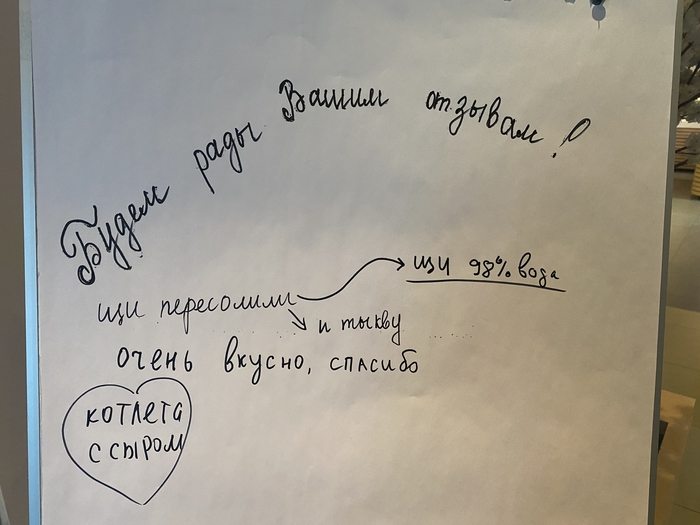 Будем рады Вашим отзывам!
щи пересолили
щи 98% вода
и тыкву
очень вкусно, спасибо
котлета
с сыром